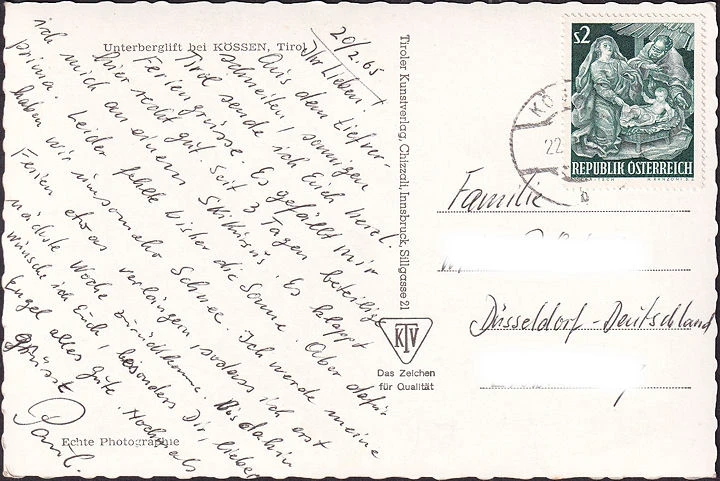 Unterberglift bei KÖSSEN, Tirol
20/2.65
Ihr Lieben!
Aus dem tiefver-
schneiten, sonnigen
Tirol sende ich Euch herzl.
Feriengrüsse. Es gefällt mir
hier recht gut. Seit 3 Tagen beteilige
ich mich an einem Skikursus. Es klappt
prima. Leider fehlte bisher die Sonne. Aber dafür
haben wir umsomehr Schnee. Ich werde meine
Ferien etwas verlängern, sodass ich erst
nächste Woche zurückkomme. Bis dahin
wünsche ich Euch, besonders Dir, lieber
Engel alles Gute. Nochmals
grüsst
Paul.
Echte Photographie
Tiroler Kunstverlag, Chizzali, Innsbruck, Sillgasse 21
KTV
Das Zeichen
für Qualität
S2
REPUBLIK ÖSTERREICH
H. RANZONI D. J.
KÖ
22.
b
Familie
Düsseldorf-Deutschland